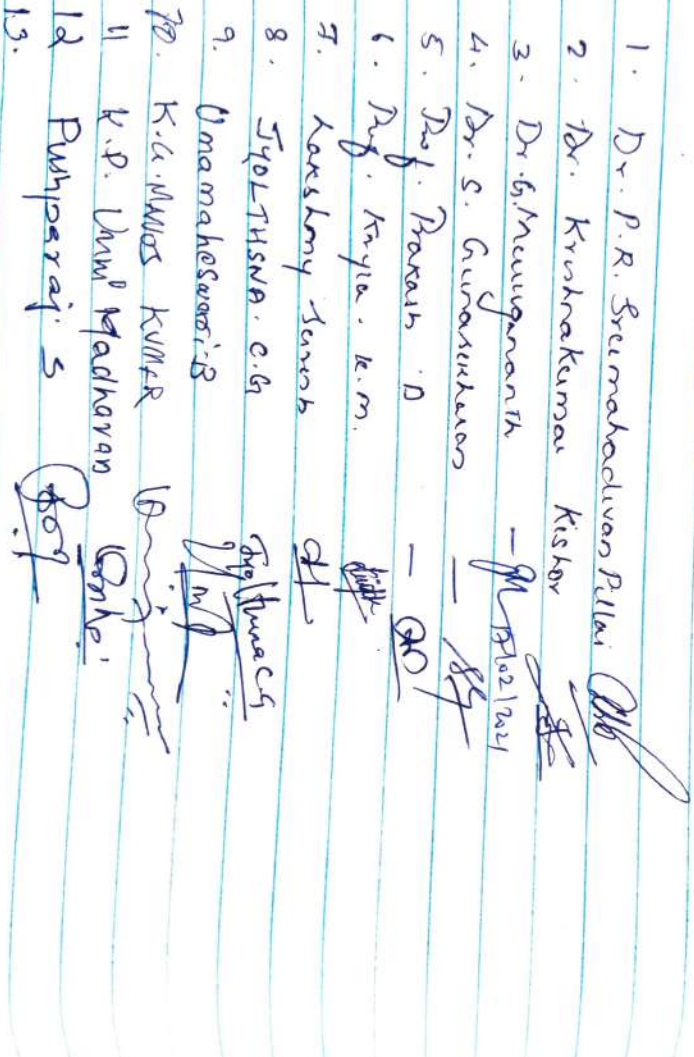 1. Dr. P.R. Sreemahadevan Pillai
2. Dr. Krishnakumar Kishor
3. Dr. G. Murugananth - 17/02/2021
4. Dr. S. Gunasekharan -
5. Prof. Prakash D -
6. Prof. K.M.
7. Lakshmy Suresh
8. JYOLTHSNA. C.G Jyolthsna CG
9. Umamaheswari.B
10. K.G. MANOJ KUMAR
11 K.P. Unni Madhavan
12 Pushparaj. S
13.